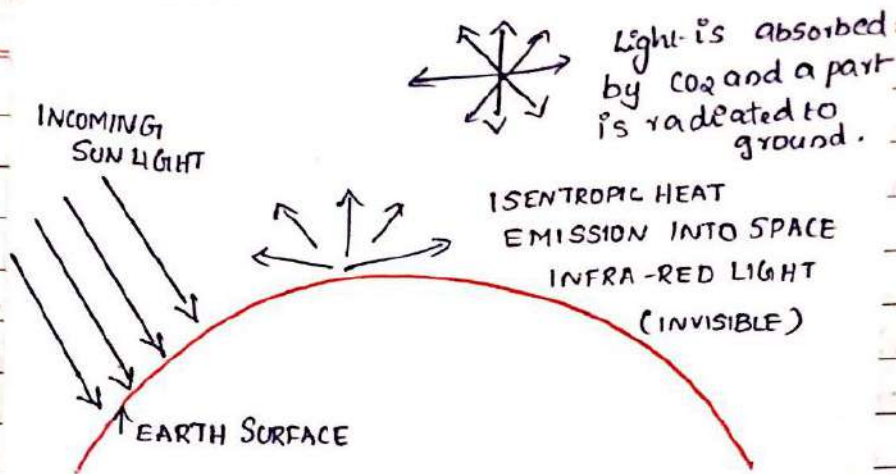 Light is absorbed
by CO2 and a part
is radiated to
ground.
INCOMING
SUNLIGHT
ISENTROPIC HEAT
EMISSION INTO SPACE
INFRA-RED LIGHT
(INVISIBLE)
EARTH SURFACE